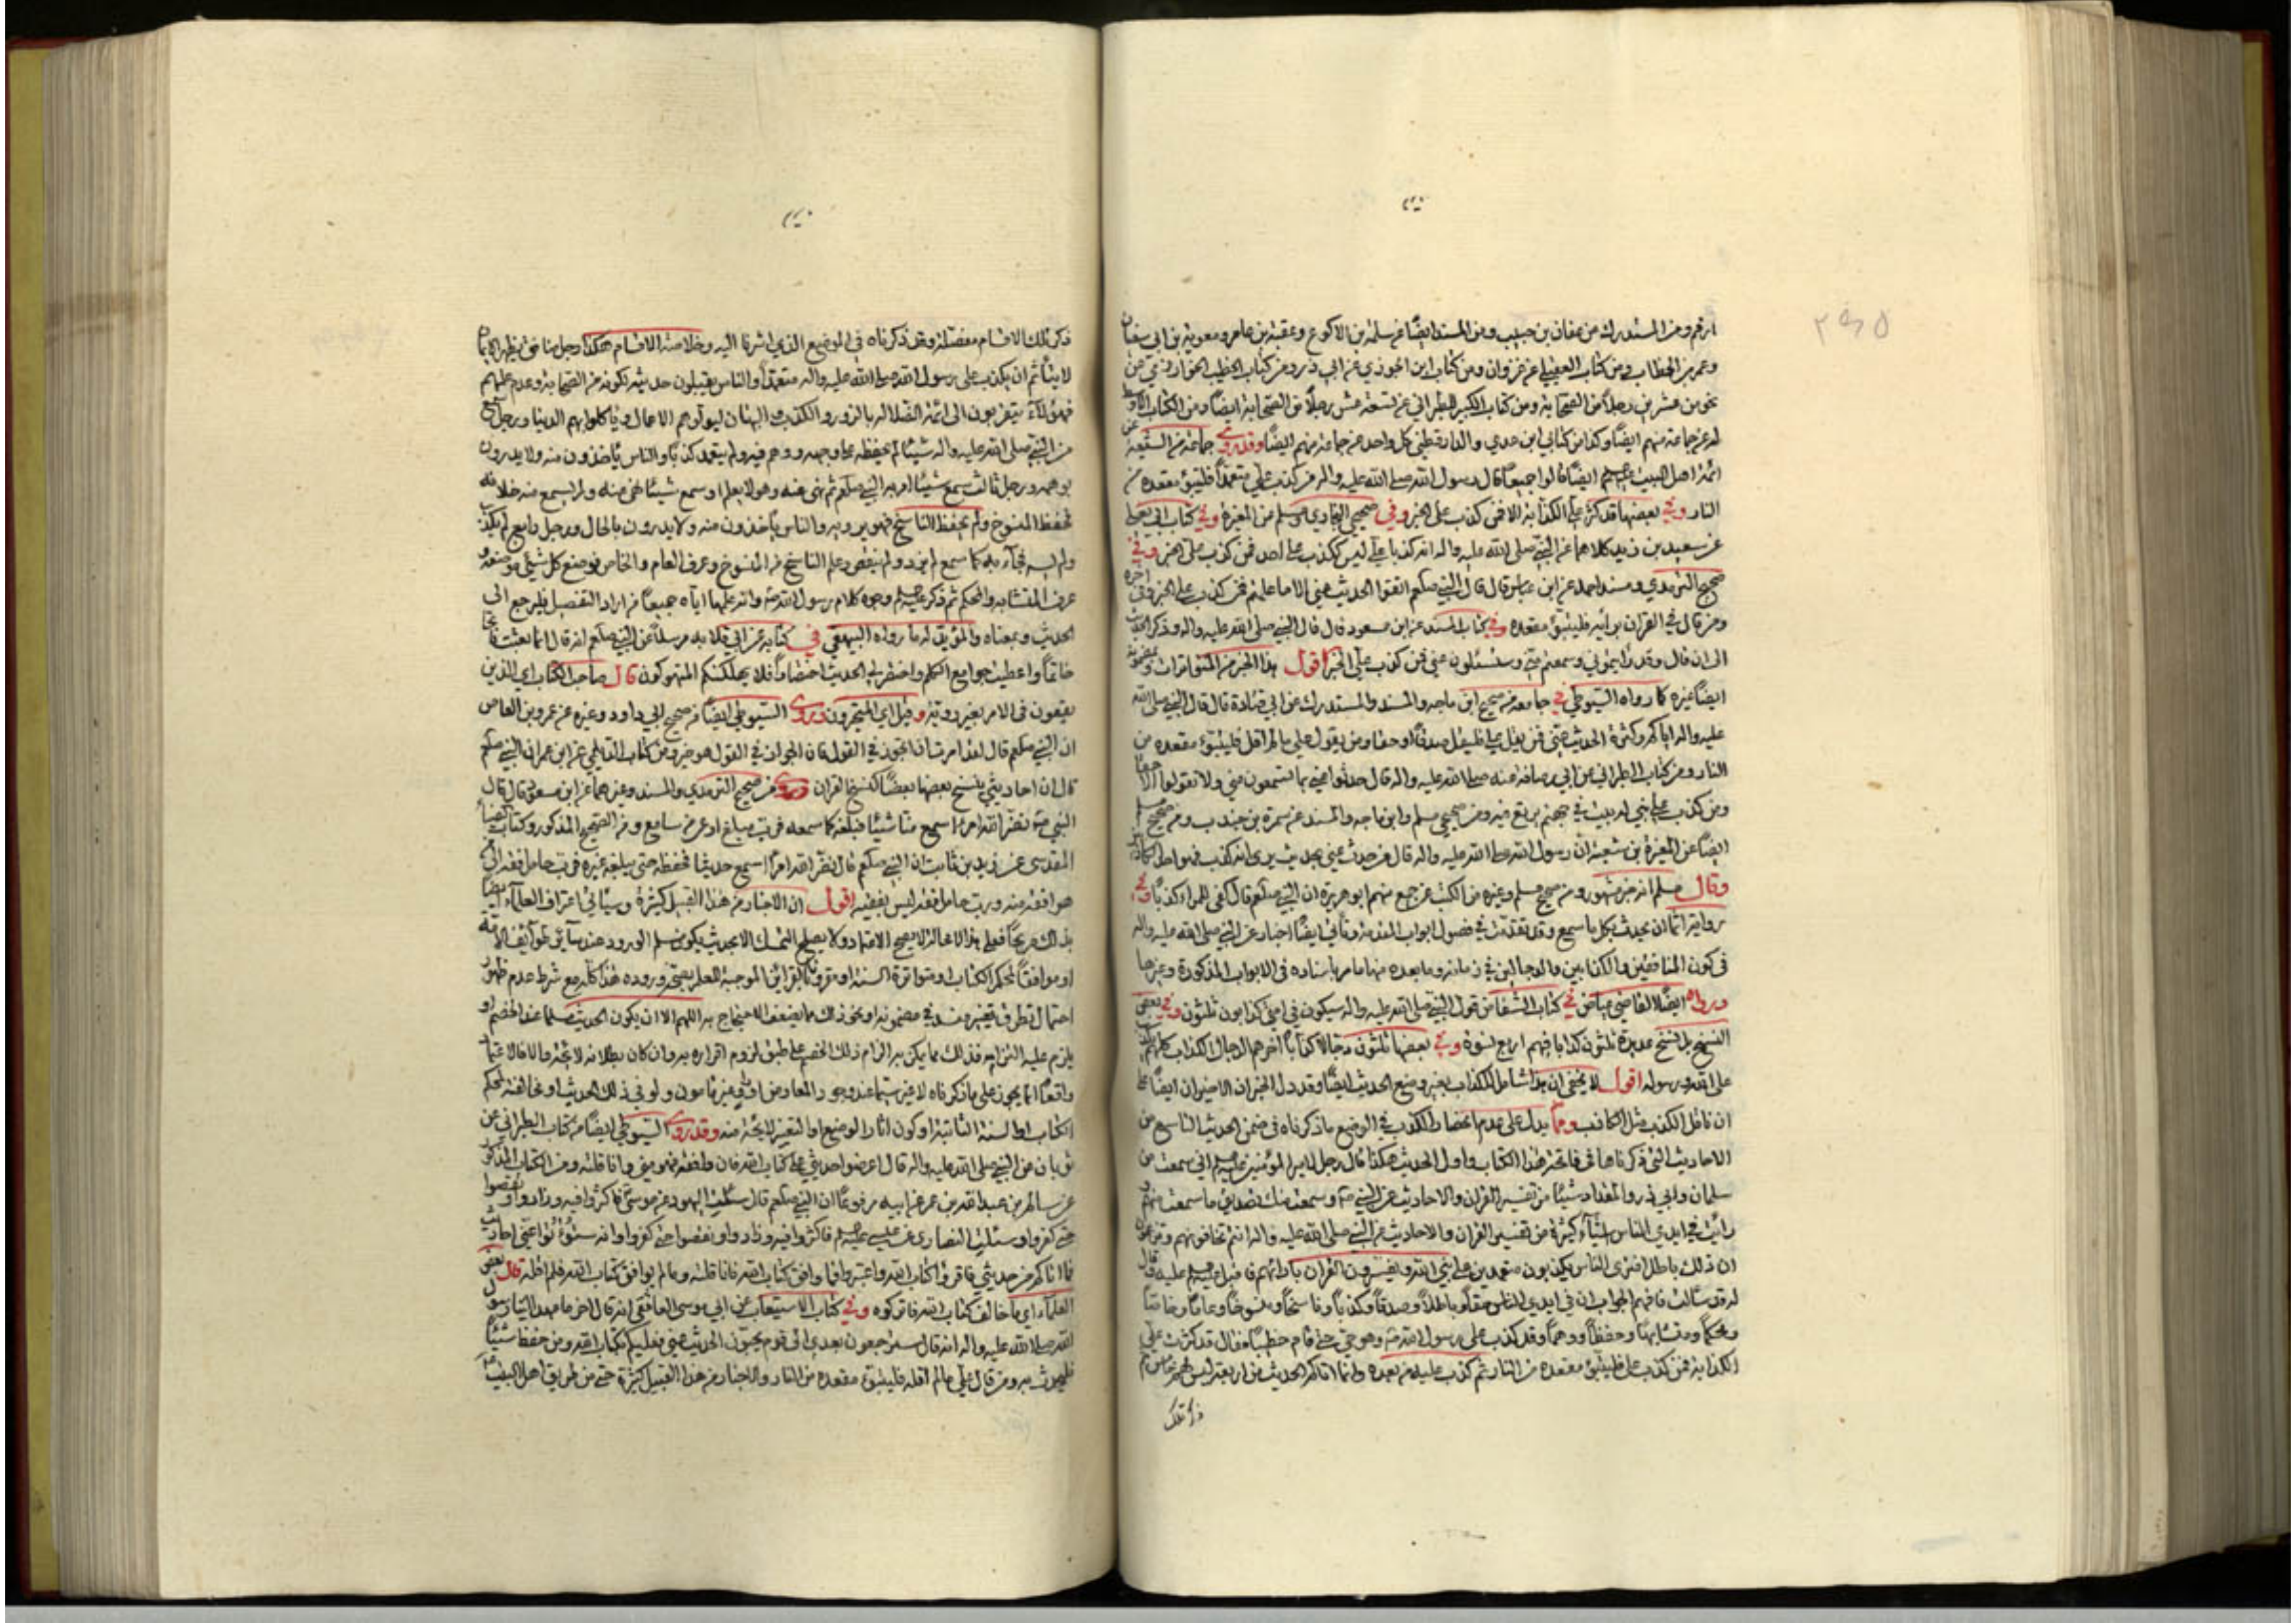 ارقم ومن المستدرك من عفان بن حبيب ومن المسند ايضًا عن سلمة بن الاكوع وعقبة بن عامر ومعوية بن ابي سفيان
وعمر بن الخطاب ومن كتاب العقيلي عن غزوان ومن كتاب ابن الجوزي عن ابي ذر ومن كتاب الخطيب الخوارزمي عن
نحو من عشرين رجلاً من الصحابة ومن كتاب الكبير للطبراني عن تسعة عشر رجلاً من الصحابة ايضًا ومن الكتاب الاوسط
له عن جماعة منهم ايضًا وكذا من كتابي ابن عدي والدارقطني كل واحد عن جماعة منهم ايضًا وقد روى جماعة من الشيعة عن
ائمة اهل البيت ايضًا قالوا جميعًا قال رسول الله صلى الله عليه واله من كذب علي متعمدًا فليتبؤ مقعده من
النار وفي بعضها قد كثرت علي الكذابة الا فمن كذب علي الخبر وفي صحيحي البخاري ومسلم من المغيرة وفي كتاب ابي يعلى
عن سعيد بن زيد كلاهما عن النبي صلى الله عليه واله ان كذبا علي ليس ككذب على احد فمن كذب علي الخبر وفي
صحيح الترمذي ومسند احمد عن ابن عباس قال قال النبي صلعم اتقوا الحديث عني الا ما علمتم فمن كذب علي الخبر وفي اخره
ومن قال في القران برأيه فليتبؤ مقعده وفي كتاب المسند عن ابن مسعود قال قال النبي صلى الله عليه واله وذكر الحديث
الى ان قال وقد رايتموني وسمعتم مني وستسئلون عني فمن كذب علي الخبر اقول هذا الخبر من المتواترات وبمضمونه
ايضًا غيره كما رواه السيوطي في جامعه من صحيح ابن ماجه والمسند والمستدرك عن ابي قتادة قال قال النبي صلى الله
عليه واله اياكم وكثرة الحديث عني فمن يقل علي فليقل صدقًا او حقا ومن يقول علي ما لم اقل فليتبؤ مقعده من
النار ومن كتاب الطبراني عن ابي قرصافة عنه صلى الله عليه واله قال حدثوا عني بما تسمعون مني ولا تقولوا الا حقًا
ومن كذب علي بني له بيت في جهنم يرتع فيه ومن صحيحي مسلم وابن ماجه والمسند عن سمرة بن جندب ومن صحيح مسلم
ايضًا عن المغيرة بن شعبة ان رسول الله صلى الله عليه واله قال من حدث عني بحديث يرى انه كذب فهو احد الكاذبين
وقال مسلم انه خبر مشهور ومن صحيح مسلم وغيره من الكتب عن جمع منهم ابو هريرة ان النبي صلعم قال كفى للمرء كذبًا وفي
رواية اثما ان يحدث بكل ما سمع وقد تقدمت في فصول ابواب المقدمة وتأتي ايضًا اخبار عن النبي صلى الله عليه واله
في كون المنافقين والكذابين والدجالين في زمانه وما بعده منها ما مر باسناده في الابواب المذكورة وغيرها
ورواه ايضًا القاضي عياض في كتاب الشفا من قول النبي صلى الله عليه واله سيكون في امتي كذابون ثلثون وفي بعض
النسخ بل نسخ عديدة ثلثون كذابا فيهم اربع نسوة وفي بعضها ثلثون دجالاً كذابًا آخرهم الدجال الكذاب كلهم يكذب
على الله ورسوله اقول لا يخفى ان هذا شامل للكذاب بغير وضع الحديث ايضًا وقد دل الخبران الاخيران ايضًا على
ان ناقل الكذب مثل الكاذب ومما يدل على عدم انحصار الكذب في الوضع ما ذكرناه في ضمن الحديث التاسع من
الاحاديث التي ذكرناها في فاتحة هذا الكتاب واول الحديث هكذا قال رجل لامير المؤمنين اني سمعت من
سلمان وابي ذر والمقداد شيئًا من تفسير القران والاحاديث عن النبي ص وسمعت منك تصديق ما سمعت منهم و
رأيت في ايدي الناس اشياء كثيرة من تفسير القران والاحاديث عن النبي صلى الله عليه واله انتم تخالفونهم وتزعمون
ان ذلك باطل افترى الناس يكذبون متعمدين على نبي الله ويفسرون القران بآرائهم فاقبل عليه وقال
له قد سألت فافهم الجواب ان في ايدي الناس حقًا وباطلاً وصدقًا وكذبًا وناسخًا ومنسوخًا وعامًا وخاصًا
ومحكمًا ومتشابهًا وحفظًا ووهمًا وقد كذب على رسول الله ص وهو حي حتى قام خطيبًا فقال قد كثرت علي
الكذابة فمن كذب علي فليتبؤ مقعده من النار ثم كذب عليه من بعده وانما اتاكم الحديث من اربعة ليس لهم خامس ثم
ذكر تلك
ذكر تلك الاقسام مفصلة وقد ذكرناه في الموضع الذي اشرنا اليه وخلاصة الاقسام هكذا رجل منافق يظهر الايمان
لا يتأثم ان يكذب على رسول الله صلى الله عليه واله متعمدًا والناس يقبلون حديثه لكونه من الصحابة وعدم علمهم
فهؤلاء يتقربون الى ائمة الضلالة بالزور والكذب والبهتان ليولوهم الاعمال وياكلوا بهم الدنيا ورجل سمع
من النبي صلى الله عليه واله شيئًا لم يحفظه على وجهه ووهم فيه ولم يتعمد كذبًا والناس يأخذون منه ولا يدرون
بوهمه ورجل ثالث سمع شيئًا امر به النبي صلعم ثم نهى عنه وهو لا يعلم او سمع شيئًا نهى عنه ولم يسمع منه خلافه
فحفظ المنسوخ ولم يحفظ الناسخ فهو يرويه والناس يأخذون منه ولا يدرون بالحال ورجل رابع لم يكذب
ولم يسه فجآء به كما سمع لم يزد ولم ينقص وعلم الناسخ من المنسوخ وعرف العام والخاص فوضع كل شيئ موضعه و
عرف المتشابه والمحكم ثم ذكر وجوه كلام رسول الله ص وانه علمها اياه جميعًا فمن اراد التفصيل فليرجع الى
الحديث وبمعناه والمؤيد له ما رواه البيهقي في كتابه عن ابي قلابه مرسلاً عن النبي صلعم انه قال انما بعثت فاتحًا
خاتمًا واعطيت جوامع الكلم واختصر لي الحديث اختصارًا فلا يهلكنكم المتهوكون قال صاحب الكتاب اي الذين
يقعون في الامر بغير روية وقيل اي المتحيرون وروى السيوطي ايضًا من صحيح ابي داود وغيره عن عمرو بن العاص
ان النبي صلعم قال لقد امرت ان اتجوز في القول فان الجواز في القول هو خير ومن كتاب الديلمي عن ابن عمر ان النبي صلعم
قال ان احاديثي ينسخ بعضها بعضًا كنسخ القران وروى من صحيح الترمذي والمسند وغيرهما عن ابن مسعود قال قال
النبي ص نضر الله امرءًا سمع منا شيئًا فبلغه كما سمعه فرب مبلغ اوعى من سامع ومن الصحيح المذكور وكتاب الضياء
المقدسي عن زيد بن ثابت ان النبي صلعم قال نضر الله امرءًا سمع حديثًا فحفظه حتى يبلغه غيره فرب حامل فقه الى من
هو افقه منه ورب حامل فقه ليس بفقيه اقول ان الاخبار من هذا القبيل كثيرة وسيأتي اعتراف العلمآء ايضًا
بذلك صريحًا فعلى هذا لا محالة لا يصح الاعتماد ولا يصلح التمسك الا بحديث يكون مسلم الورود عند سآئر طوآئف الامة
او موافقًا لمحكم الكتاب او متواترة السنة او مقرونًا بالقرآئن الموجبة للعلم بصحة وروده هذا كله مع شرط عدم ظهور
احتمال تطرق تغيير منه في مضمونه او نحو ذلك مما يضعف الاحتجاج به اللهم الا ان يكون الحديث مسلما عند الخصم او
يلزم عليه التزامه فذلك مما يمكن به الزام ذلك الخصم على طبق لزوم اقراره به وان كان بطلانه لائحة والا فالاعتماد
واقعًا انما يجوز على ما ذكرناه لا غير سيما عند وجود المعارض او غير مأمون ولو في ذلك الحديث او مخالفة لمحكم
الكتاب او السنة الثابتة او كون اثار الوضع او التغيير لايحة منه وقد روى السيوطي ايضًا من كتاب الطبراني عن
ثوبان عن النبي صلى الله عليه واله قال اعرضوا حديثي على كتاب الله فان وافقه فهو مني وانا قلته ومن الكتاب المذكور
عن سالم بن عبد الله بن عمر عن ابيه مرفوعًا ان النبي صلعم قال سئلت اليهود عن موسى فاكثروا فيه وزادوا ونقصوا
حتى كفروا وسئلت النصارى عن عيسى فاكثروا فيه وزادوا ونقصوا حتى كفروا وانه ستؤثر عني احاديث
فما اتاكم من حديثي فاقرؤا كتاب الله واعتبروا فما وافق كتاب الله فانا قلته وما لم يوافق كتاب الله فلم اقله قال بعض
العلمآء اي ما خالف كتاب الله فاتركوه وفي كتاب الاستيعاب عن ابي موسى الغافقي انه قال اخر ما عهد الينا رسول
الله صلى الله عليه واله انه قال سترجعون بعدي الى قوم يحبون الحديث عني فعليكم بكتاب الله ومن حفظ شيئًا
فليحدث به ومن قال علي ما لم اقله فليتبؤ مقعده من النار والاخبار من هذا القبيل كثيرة حتى من طريق اهل البيت